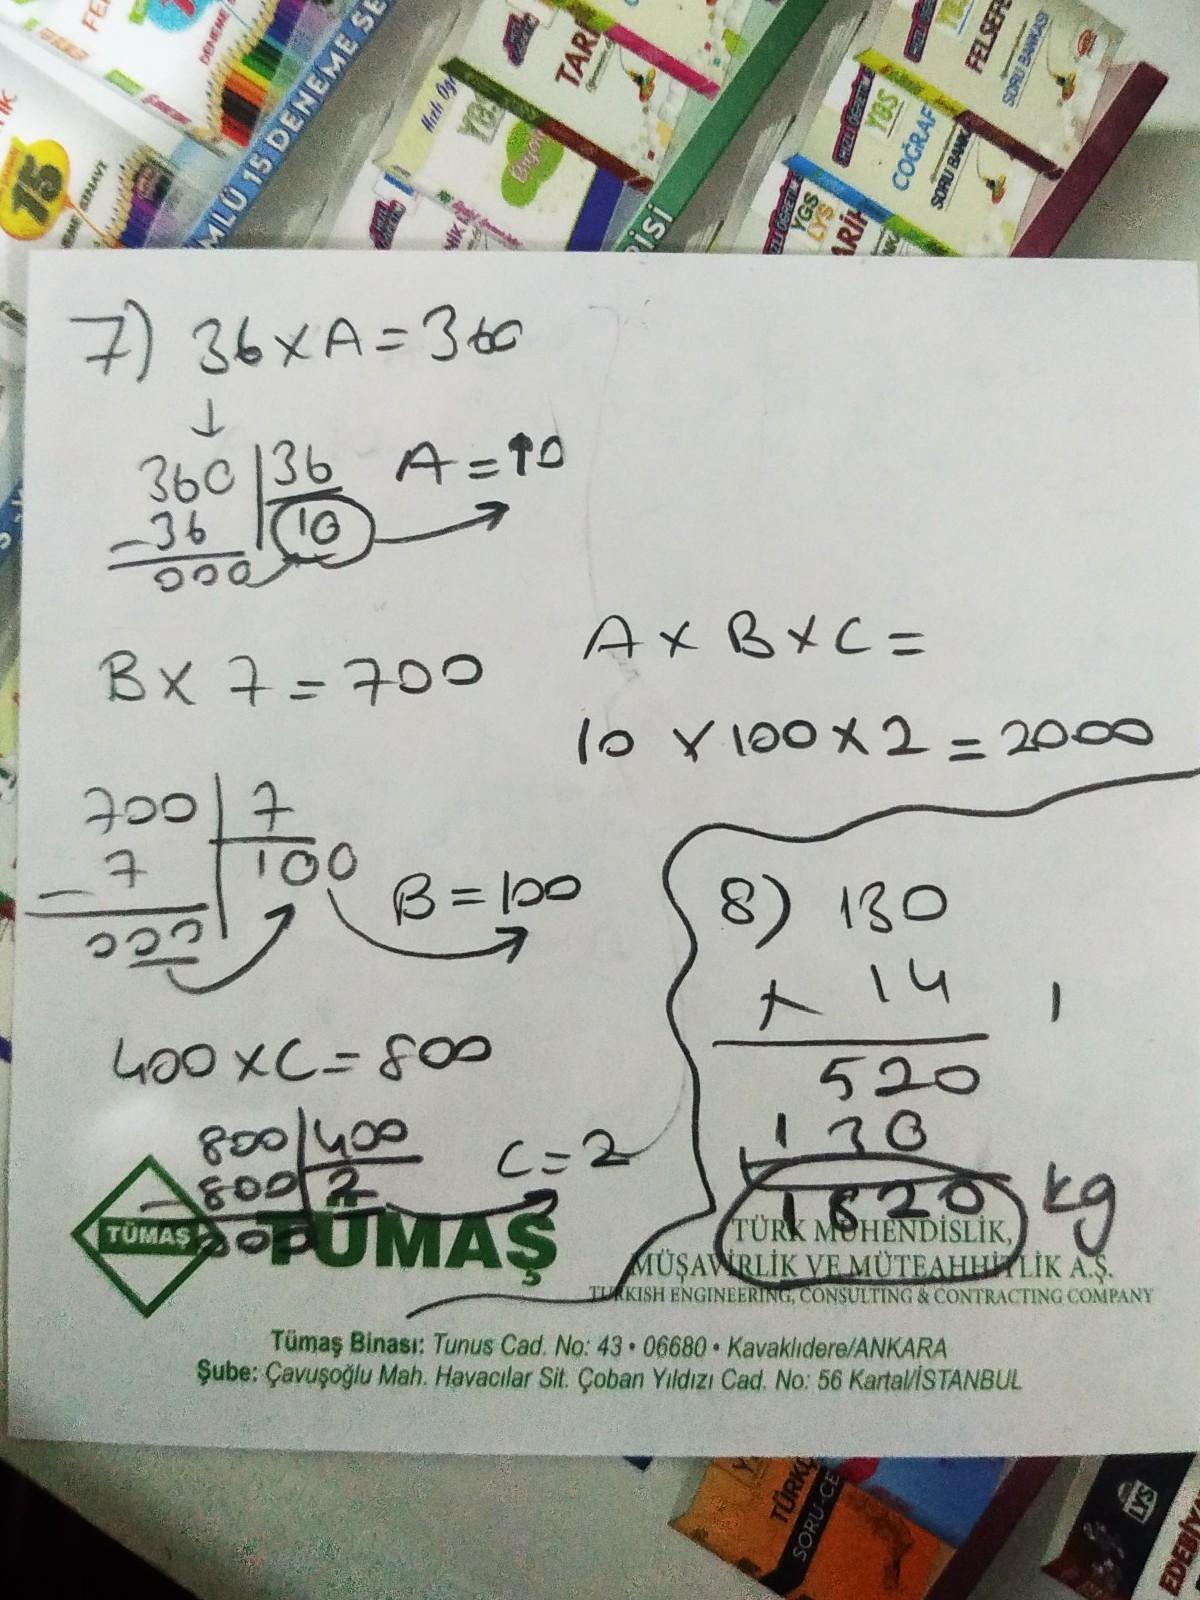 DENEME SE
MLÜ 15 DENEME SE
15
TARİ
Hızlı Öğr
YGS
Biyol
YGS
COĞRAF
SORU BANKA
FELSEFE
SORU BANKASI
YGS
LYS
TARİH
İSİ
7) 36 x A = 360
↓
360 | 36
- 36 | 10
000
A = 10
B x 7 = 700
700 | 7
- 7 | 100
000
B = 100
400 x C = 800
800 | 400
- 800 | 2
000
C = 2
A x B x C =
10 x 100 x 2 = 2000
8) 130
x 14
520
130
+
1820 kg
1
TÜMAŞ
TÜMAŞ
TÜRK MÜHENDİSLİK,
MÜŞAVİRLİK VE MÜTEAHHİTLİK A.Ş.
TURKISH ENGINEERING, CONSULTING & CONTRACTING COMPANY
Tümaş Binası: Tunus Cad. No: 43 • 06680 • Kavaklıdere/ANKARA
Şube: Çavuşoğlu Mah. Havacılar Sit. Çoban Yıldızı Cad. No: 56 Kartal/İSTANBUL
TÜRKÇ
SORU-CE
LYS
EDEBİY